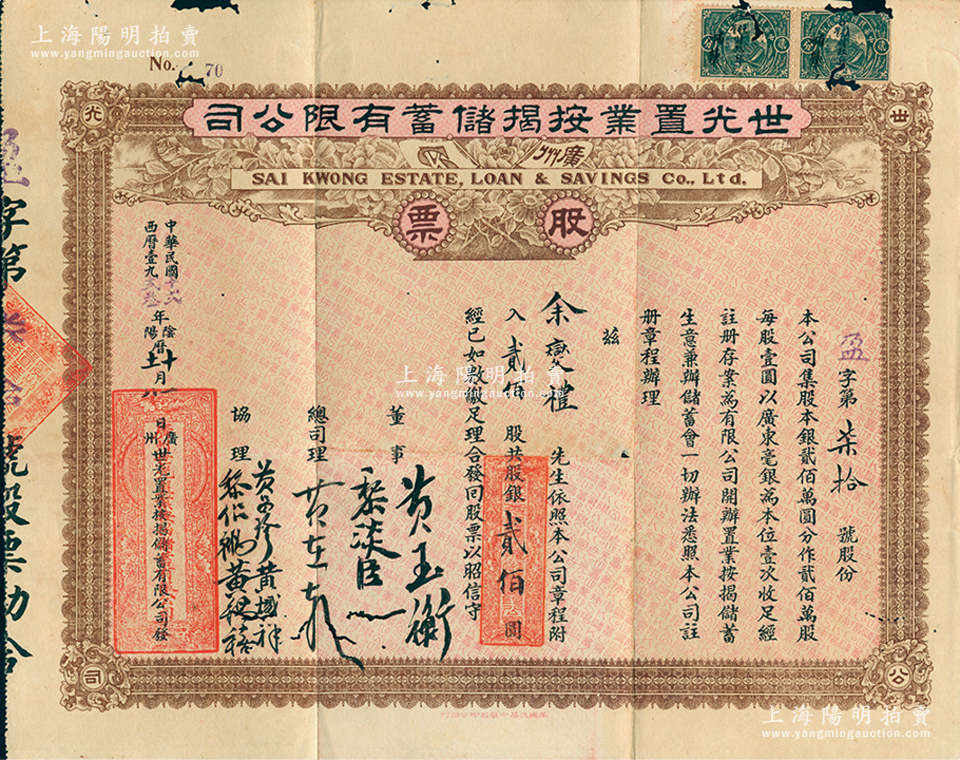 上海陽明拍賣
www.yangmingauction.com
No. 70
世光置業按揭儲蓄有限公司
廣州
SAI KWONG ESTATE, LOAN & SAVINGS Co., Ltd.
股票
盈字第柒拾號股份
本公司集股本銀貳佰萬圓分作貳佰萬股
每股壹圓以廣東毫銀為本位壹次收足經
註册存案為有限公司開辦置業按揭儲蓄
生意兼辦儲蓄會一切辦法悉照本公司註
册章程辦理
茲
余燮禮 先生依照本公司章程附
入貳佰股共股銀貳佰圓
經已如數繳足理合發回股票以昭信守
董事
黃玉衡
黎淡臣
總司理
協理
黃越祥
中華民國十弍年陰曆十月一日
西曆壹九弍叁年陽曆
廣州世光置業按揭儲蓄有限公司發
字第柒拾號股票勿合
世
光
公
司
上海陽明拍賣
www.yangmingauction.com
上海陽明拍賣
www.yangmingauction.com